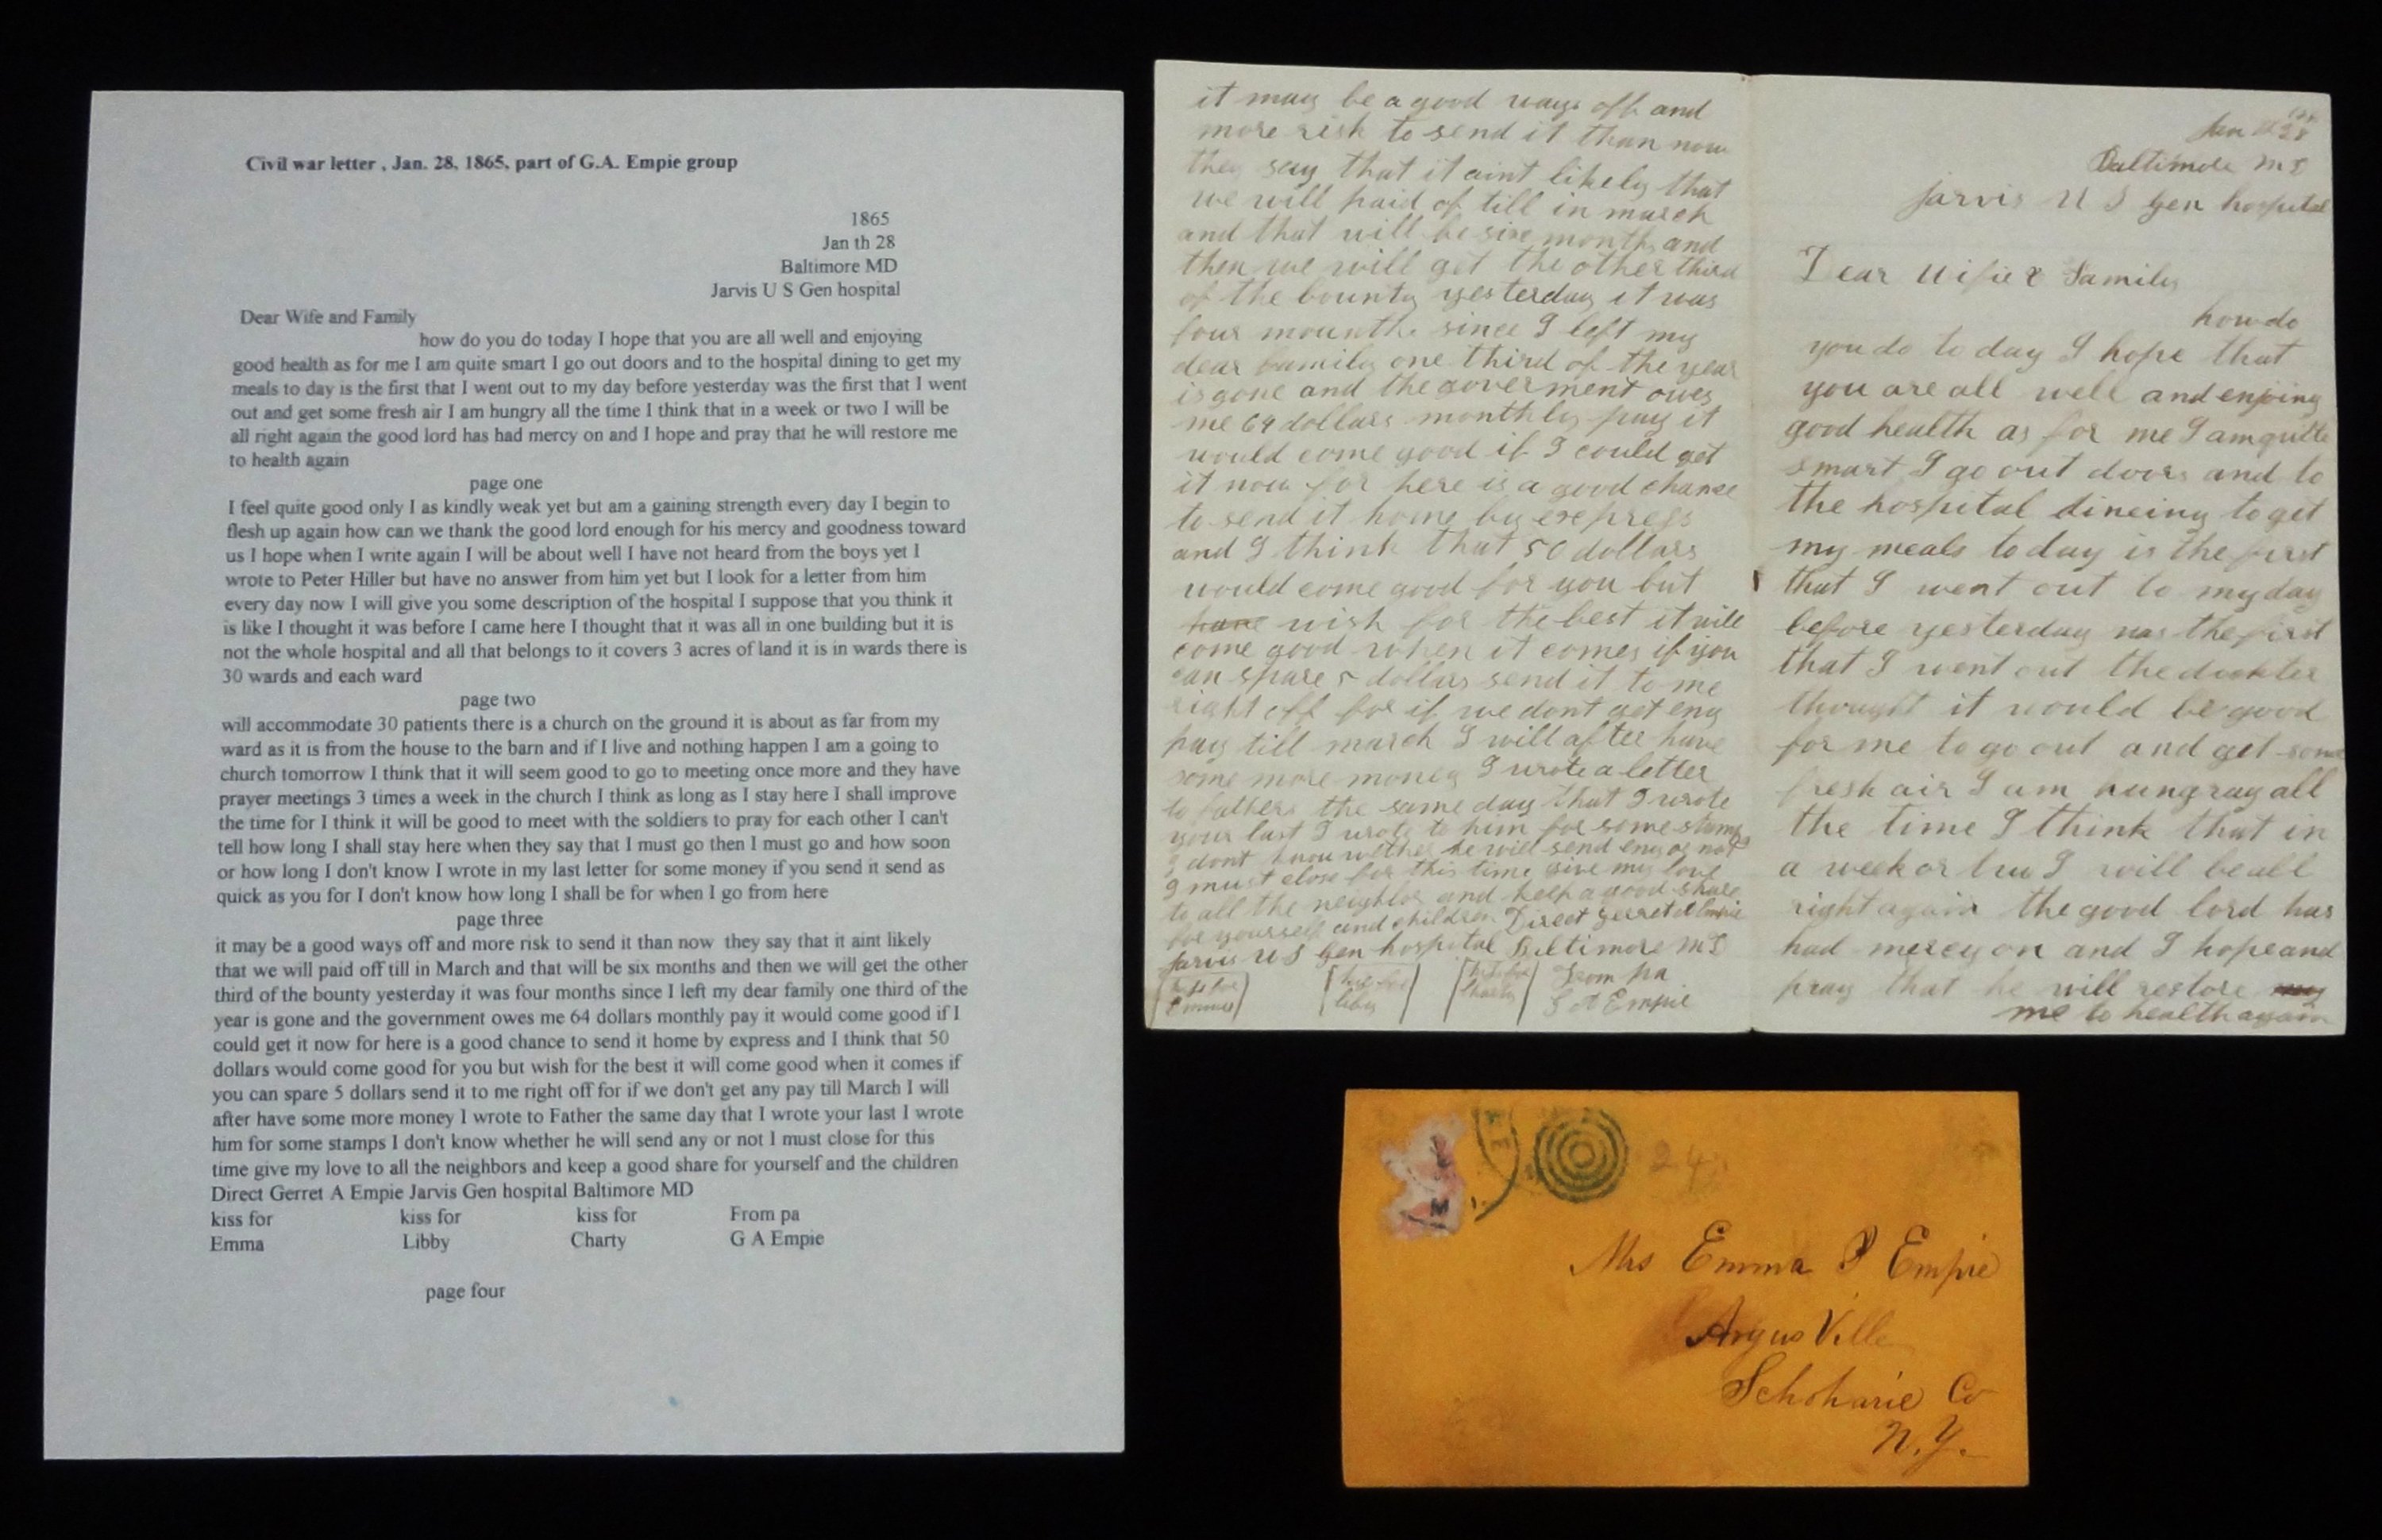 Civil war letter , Jan. 28, 1865, part of G.A. Empie group
1865
Jan th 28
Baltimore MD
Jarvis U S Gen hospital
Dear Wife and Family
how do you do today I hope that you are all well and enjoying
good health as for me I am quite smart I go out doors and to the hospital dining to get my
meals to day is the first that I went out to my day before yesterday was the first that I went
out and get some fresh air I am hungry all the time I think that in a week or two I will be
all right again the good lord has had mercy on and I hope and pray that he will restore me
to health again
page one
I feel quite good only I as kindly weak yet but am a gaining strength every day I begin to
flesh up again how can we thank the good lord enough for his mercy and goodness toward
us I hope when I write again I will be about well I have not heard from the boys yet I
wrote to Peter Hiller but have no answer from him yet but I look for a letter from him
every day now I will give you some description of the hospital I suppose that you think it
is like I thought it was before I came here I thought that it was all in one building but it is
not the whole hospital and all that belongs to it covers 3 acres of land it is in wards there is
30 wards and each ward
page two
will accommodate 30 patients there is a church on the ground it is about as far from my
ward as it is from the house to the barn and if I live and nothing happen I am a going to
church tomorrow I think that it will seem good to go to meeting once more and they have
prayer meetings 3 times a week in the church I think as long as I stay here I shall improve
the time for I think it will be good to meet with the soldiers to pray for each other I can't
tell how long I shall stay here when they say that I must go then I must go and how soon
or how long I don't know I wrote in my last letter for some money if you send it send as
quick as you for I don't know how long I shall be for when I go from here
page three
it may be a good ways off and more risk to send it than now they say that it aint likely
that we will paid off till in March and that will be six months and then we will get the other
third of the bounty yesterday it was four months since I left my dear family one third of the
year is gone and the government owes me 64 dollars monthly pay it would come good if I
could get it now for here is a good chance to send it home by express and I think that 50
dollars would come good for you but wish for the best it will come good when it comes if
you can spare 5 dollars send it to me right off for if we don't get any pay till March I will
after have some more money I wrote to Father the same day that I wrote your last I wrote
him for some stamps I don't know whether he will send any or not I must close for this
time give my love to all the neighbors and keep a good share for yourself and the children
Direct Gerret A Empie Jarvis Gen hospital Baltimore MD
kiss for kiss for kiss for From pa
Emma Libby Charty G A Empie
page four
it may be a good ways off and
more risk to send it than now
they say that it aint likely that
we will paid of till in march
and that will be six months and
then we will get the other third
of the bounty yesterday it was
four mounth since I left my
dear family one third of the year
is gone and the goverment owes
me 64 dollars monthly pay it
would come good if I could get
it now for here is a good chanse
to send it home by express
and I think that 50 dollars
would come good for you but
have wish for the best it will
come good when it comes if you
can spare 5 dollars send it to me
right off for if we dont get eny
pay till march I will after have
some more money I wrote a letter
to father the same day that I wrote
your last I wrote to him for some stamps
I dont know wether he will send eny or not
I must close for this time give my love
to all the neighbors and keep a good share
for yourself and children Direct Gerret A Empie
Jarvis U S Gen hospital Baltimore MD
kiss for kiss for kiss for From pa
Emma Libby Charty G A Empie
Jan 28
Baltimore MD
Jarvis U S Gen hospital
Dear Wife & Family
how do
you do to day I hope that
you are all well and enjoing
good health as for me I am quite
smart I go out doors and to
the hospital dineing to get
my meals to day is the first
that I went out to my day
before yesterday was the first
that I went out the dockter
thought it would be good
for me to go out and get some
fresh air I am hungray all
the time I think that in
a week or two I will be all
right again the good lord has
had mercy on and I hope and
pray that he will restore my
me to health again
24
Mrs Emma P Empie
Argus Ville
Schoharie Co
N.Y.